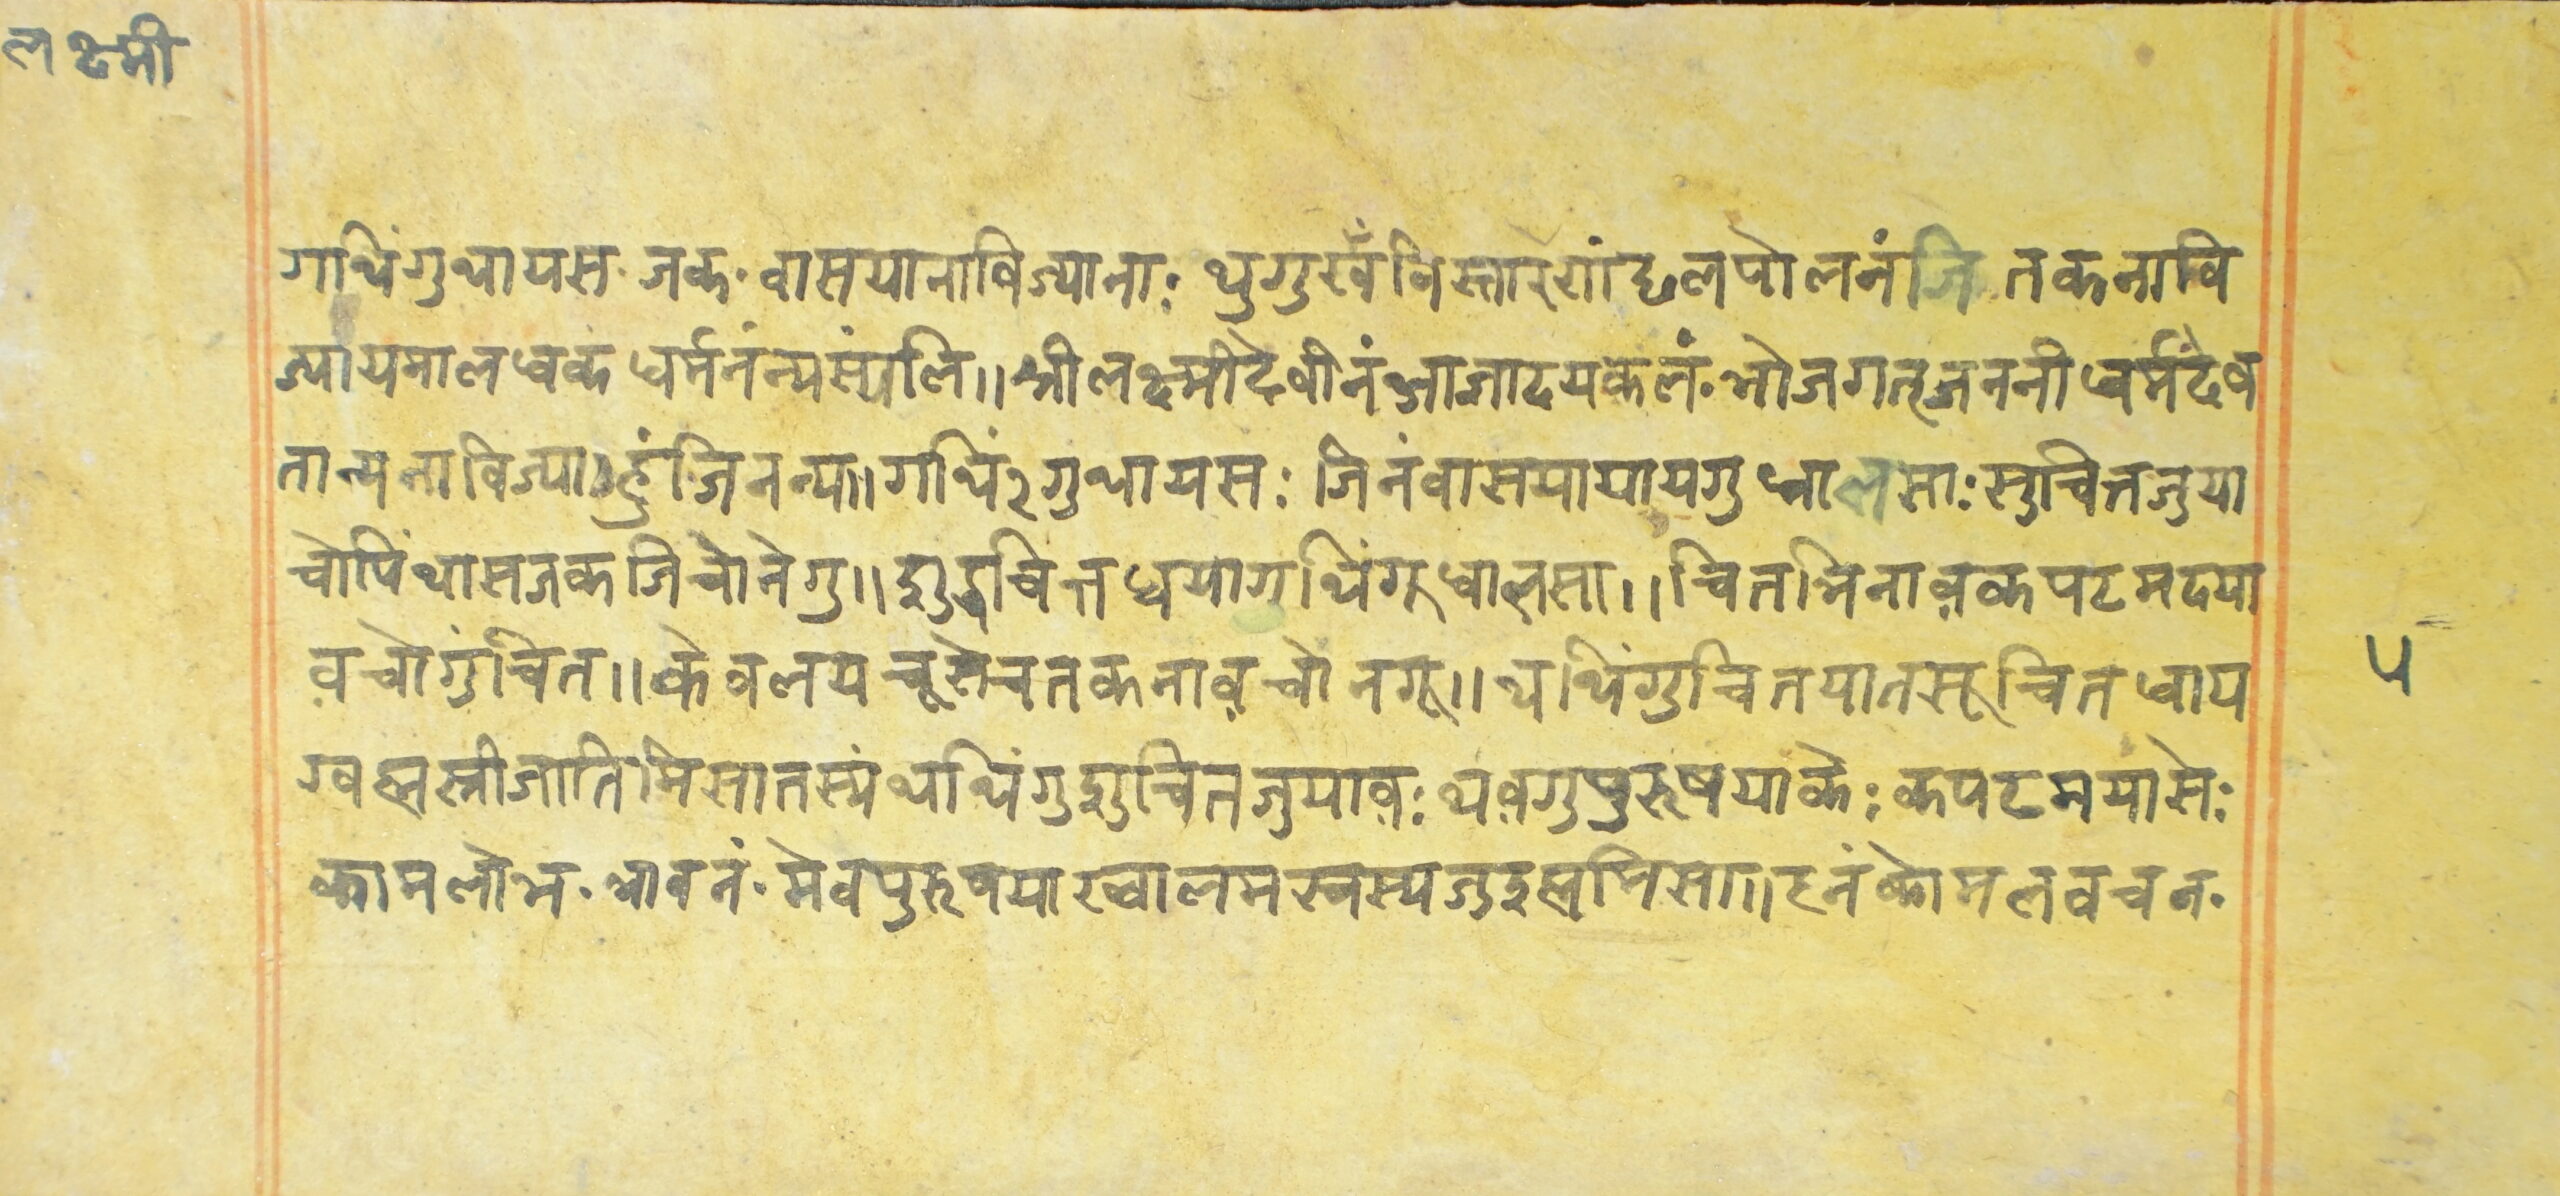 लक्ष्मी
गाथिंगुथायस· जक· वासयानाविज्याना: थुगुखँविस्तारगांछलपोलनंजि तकनावि
ज्यायमालधकं धर्मनंन्यस्यंलि॥ श्रीलक्ष्मीदेवीनंआज्ञादयकलं· भोजगत्जननीधर्मदेव
तान्यनाविज्या हुंजिनन्य॥ गथिं२गुथायस: जिनंवासयायायगुधालसा: सुचित्तजुया
चोपिंथासजकजिचोनेगु॥ शुद्धचित्तधयागुथिंगूधालसा॥ चितभिनाव़कपटमदया
व़चोगुंचित॥ केवलय चूसेचतकनाव़चोनगू॥ थथिंगुचितयातसूचितधाय
ग्वह्मस्त्रीजातिमिसातस्यंथथिंगुशुचितजुयाव़: थव़गुपुरूषयाके: कपटमयासे:
कामलोभ· भावनं· मेवपुरूषयाख्वालमस्वस्यजुइह्ममिसा॥ हनंकोमलवचन·
५